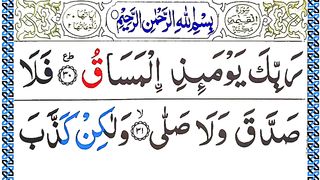 بِسْمِ اللهِ الرَّحْمٰنِ الرَّحِيْمِ
رَبِّكَ يَوْمَئِذِ ِۨالْمَسَاقُ ﴿۳۰﴾ فَلَا
صَدَّقَ وَلَا صَلّٰى ﴿۳۱﴾ وَلٰكِنْ كَذَّبَ